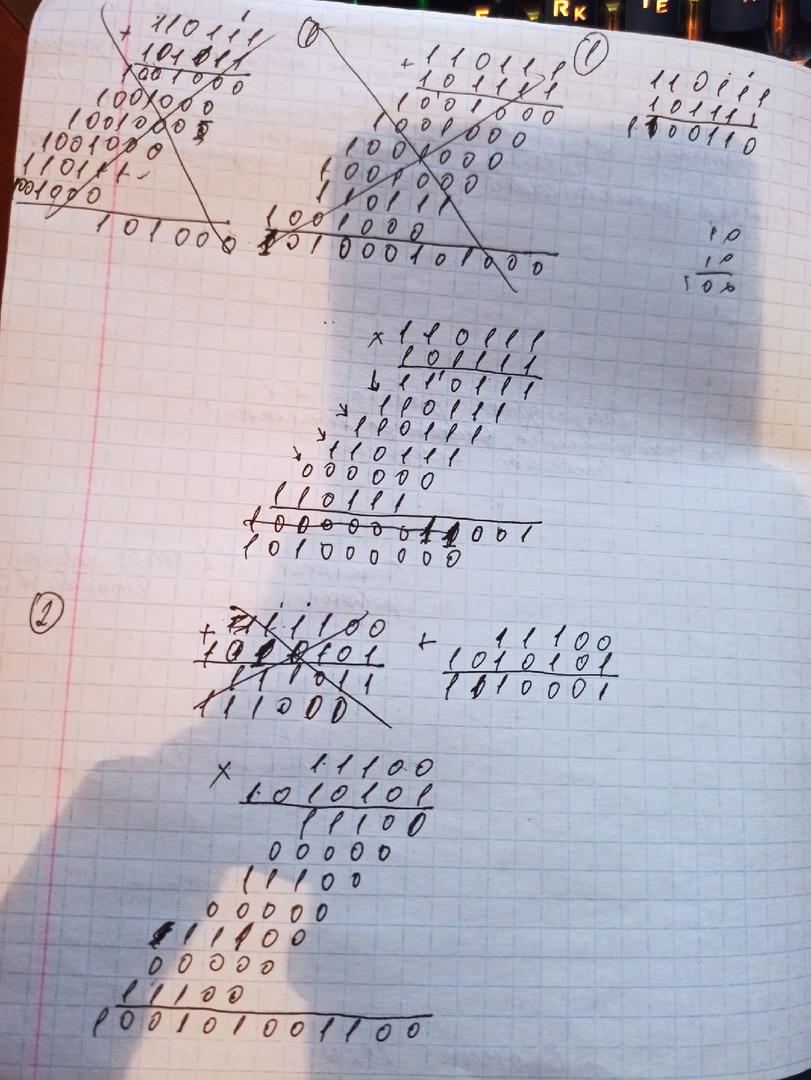 + 110111
101011
1001000
1001000
1001000
1001000
110111
001000
101000
+ 110111
101111
1001000
1001000
1001000
1001000
110111
1001000
1001000101000
1
110111
101111
1100110
10
10
100
× 110111
101111
110111
110111
110111
110111
000000
110111
101000000
2
+ 1111100
111011
111000
+ 11100
1010101
1110001
× 11100
1010101
11100
00000
11100
00000
11100
00000
11100
100101001100
RK